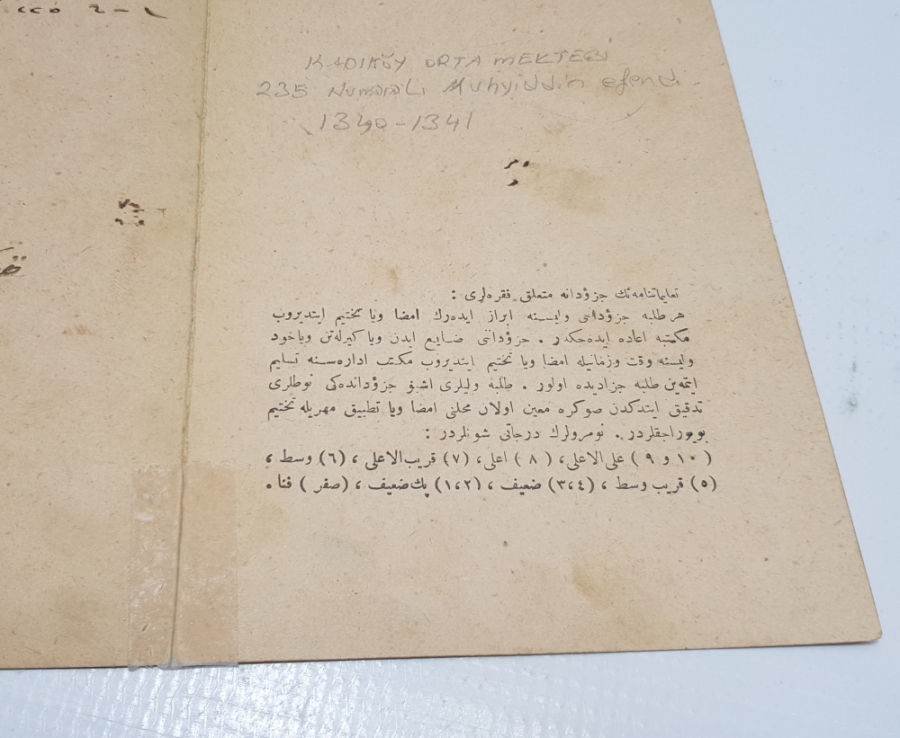 ٢٣٥ ٢ - ١
KADIKÖY ORTA MEKTEBİ
235 Numaralı Muhyiddin efendi.
1340-1341
تعليماتنامه‌نك جزؤدانه متعلق فقره‌لرى :
هر طلبه جزؤدانى وليسنه ابراز ايده‌رك امضا ويا تختيم ايتديروب
مكتبه اعاده ايده‌جكدر . جزؤداننى ضايع ايدن ويا كيرله‌تن وياخود
وليسنه وقت وزمانيله امضا ويا تختيم ايتديروب مكتب اداره‌سنه تسليم
ايتمه‌ين طلبه جزاديده اولور . طلبه وليلرى اشبو جزؤدانده‌كى نوطلرى
تدقيق ايتدكدن صوكره معين اولان محلنى امضا ويا تطبيق مهريله تختيم
بويوراجقلردر . نومرولرك درجاتى شونلردر :
( ١٠ و ٩ ) على الاعلى ، ( ٨ ) اعلى ، (٧) قريب الاعلى ، (٦) وسط ،
(٥) قريب وسط ، (٣،٤) ضعيف ، (١،٢) پك ضعيف ، (صفر ) فنا .